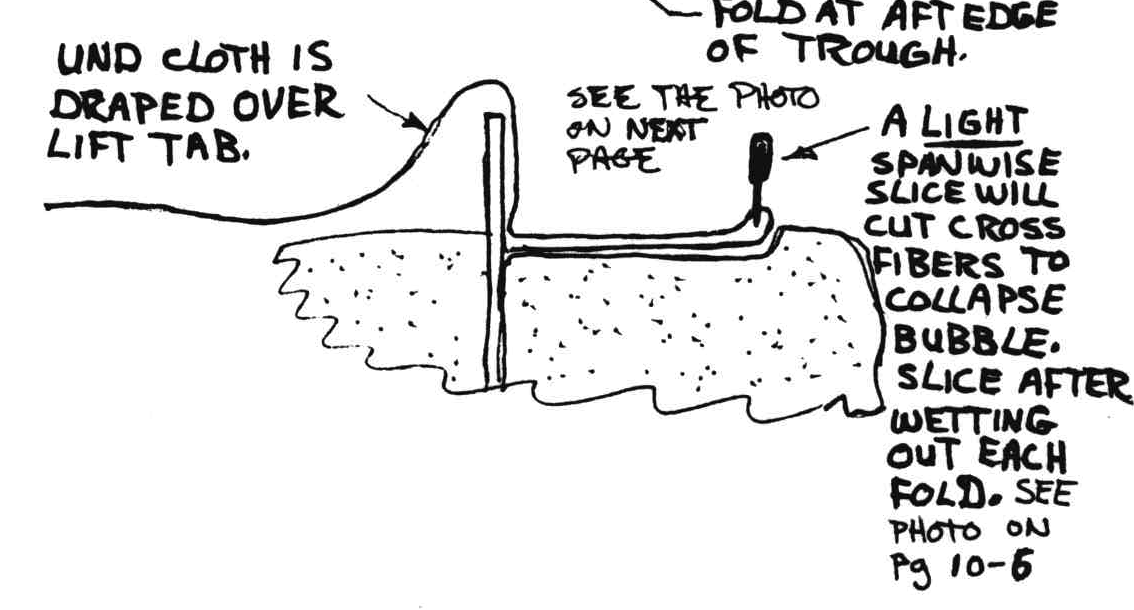 FOLD AT AFT EDGE
OF TROUGH.
UND CLOTH IS
DRAPED OVER
LIFT TAB.
SEE THE PHOTO
ON NEXT
PAGE
A LIGHT
SPANWISE
SLICE WILL
CUT CROSS
FIBERS TO
COLLAPSE
BUBBLE.
SLICE AFTER
WETTING
OUT EACH
FOLD. SEE
PHOTO ON
Pg 10-6